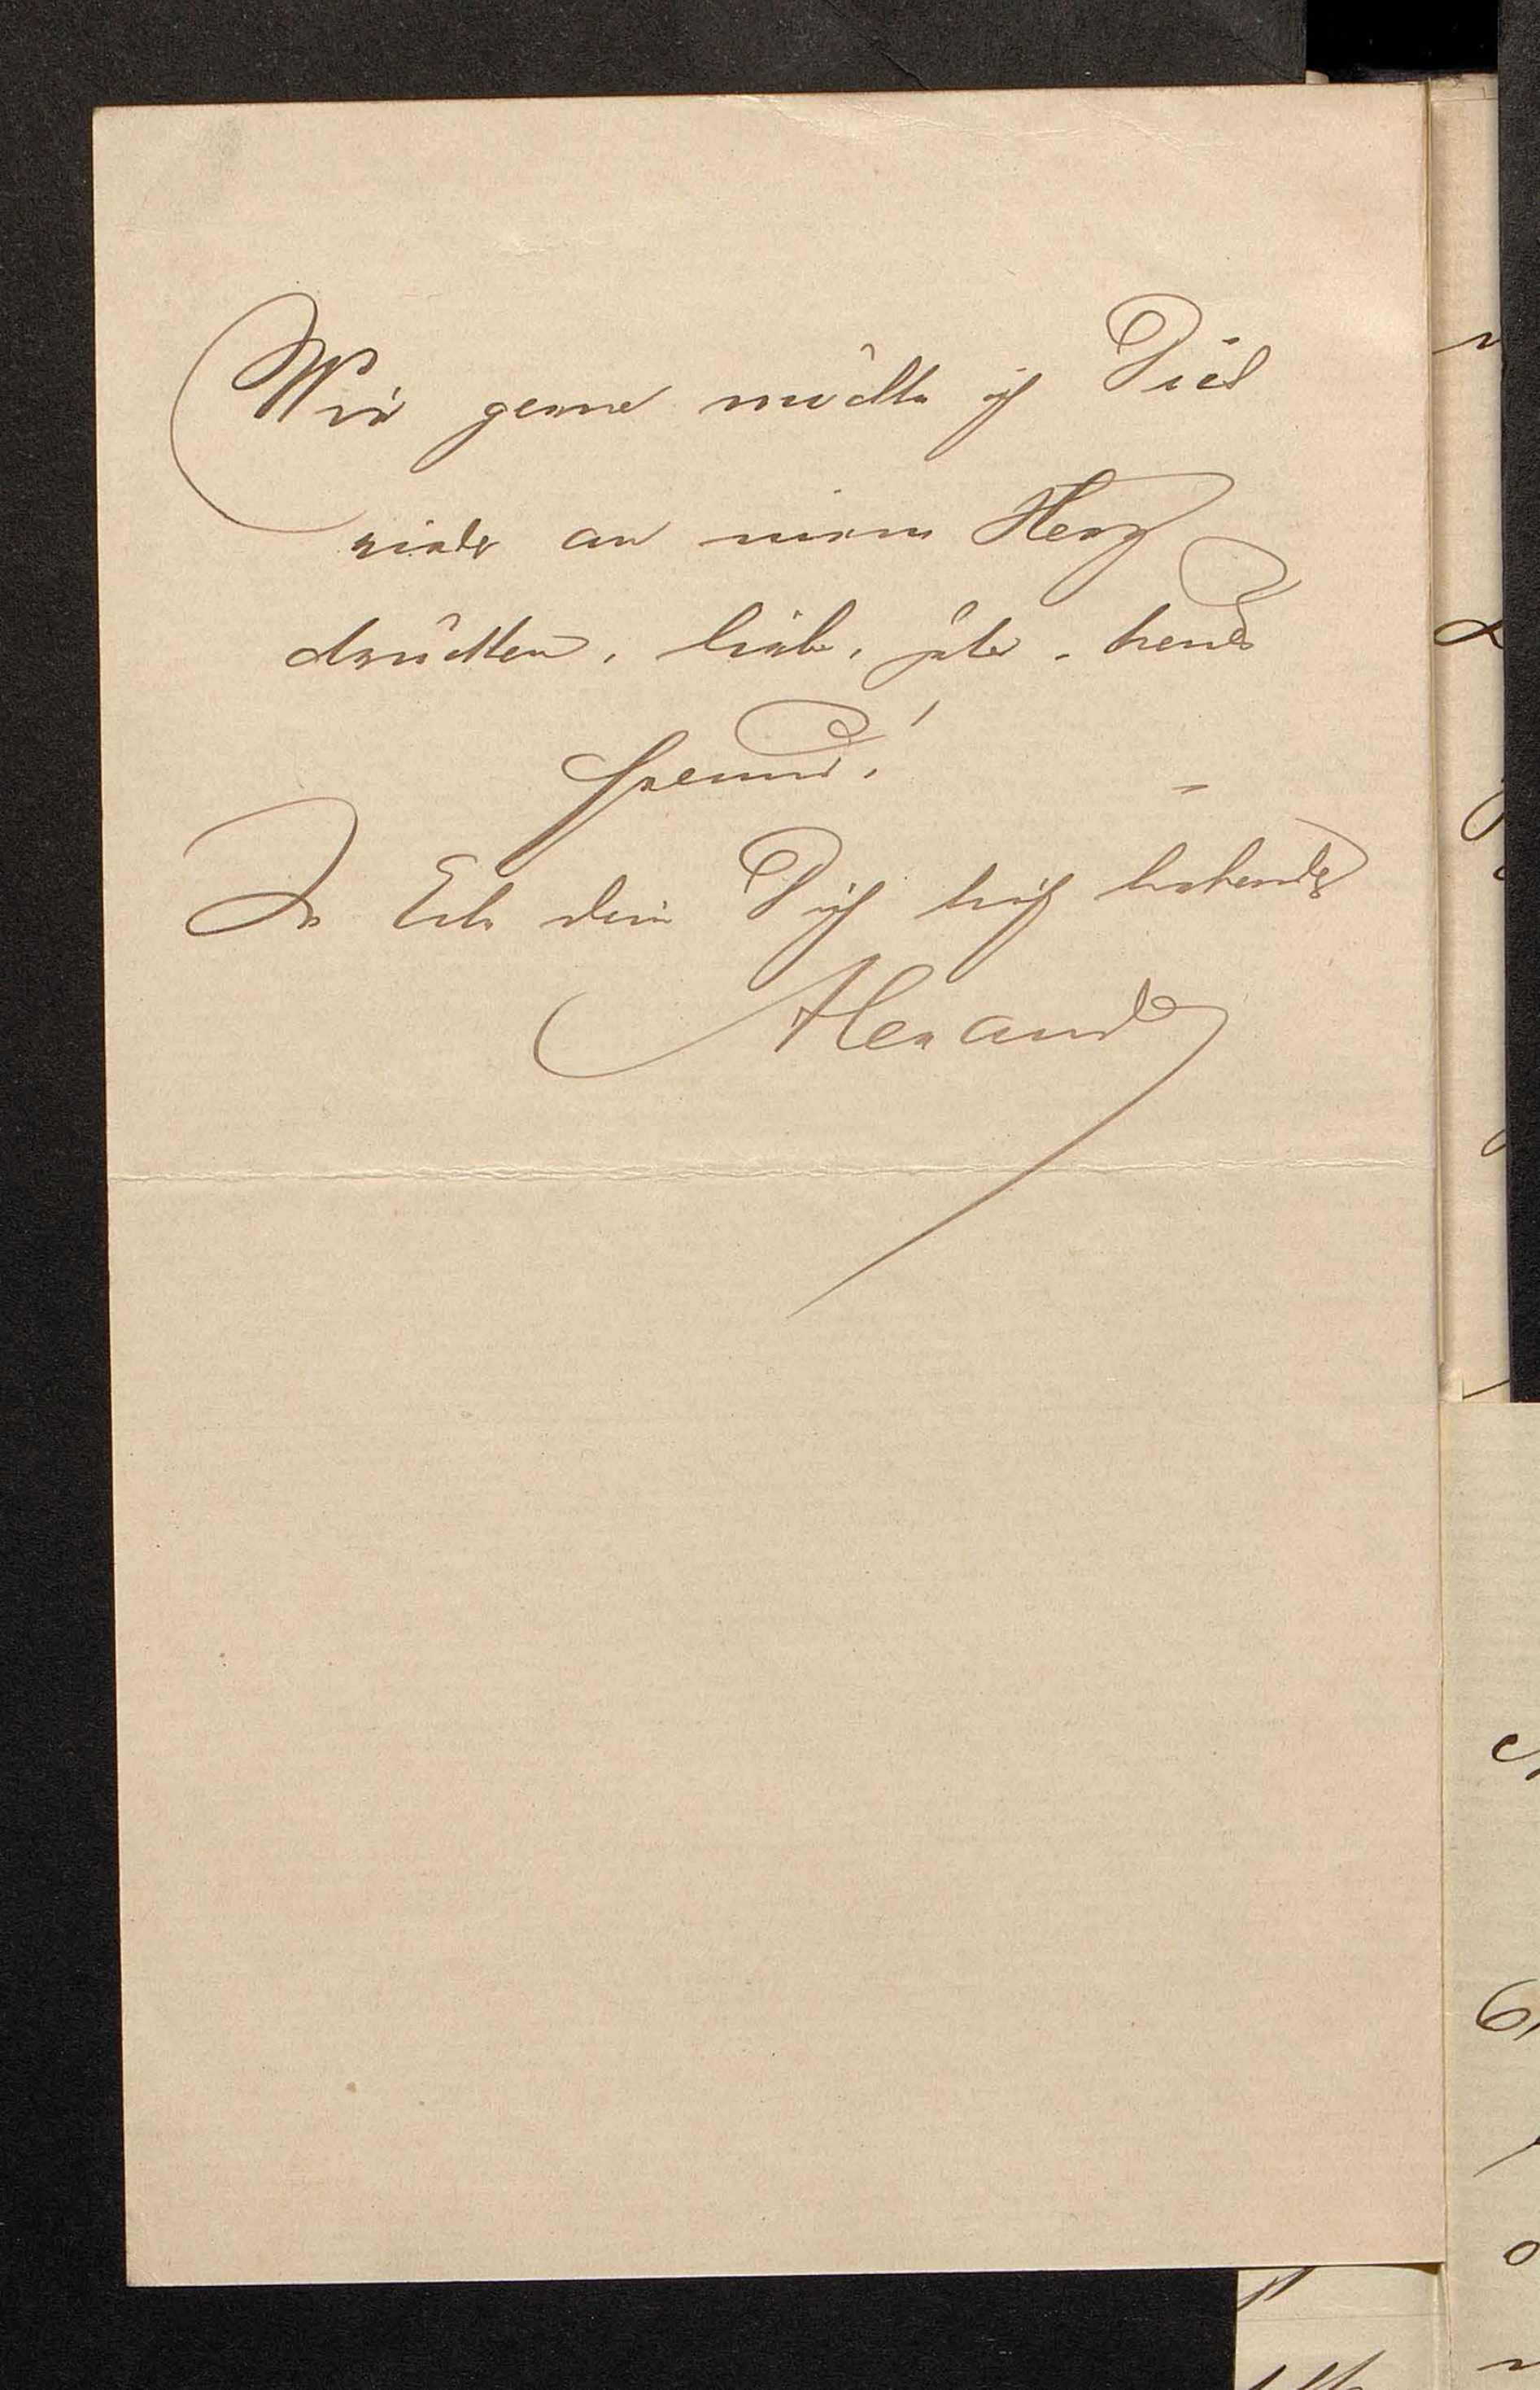 Wie gerne möchte ich Dich
wieder an meine Herz
drücken, lieber, guter, treuer
Freund!
In Eile dein Dich liebender
Alexander